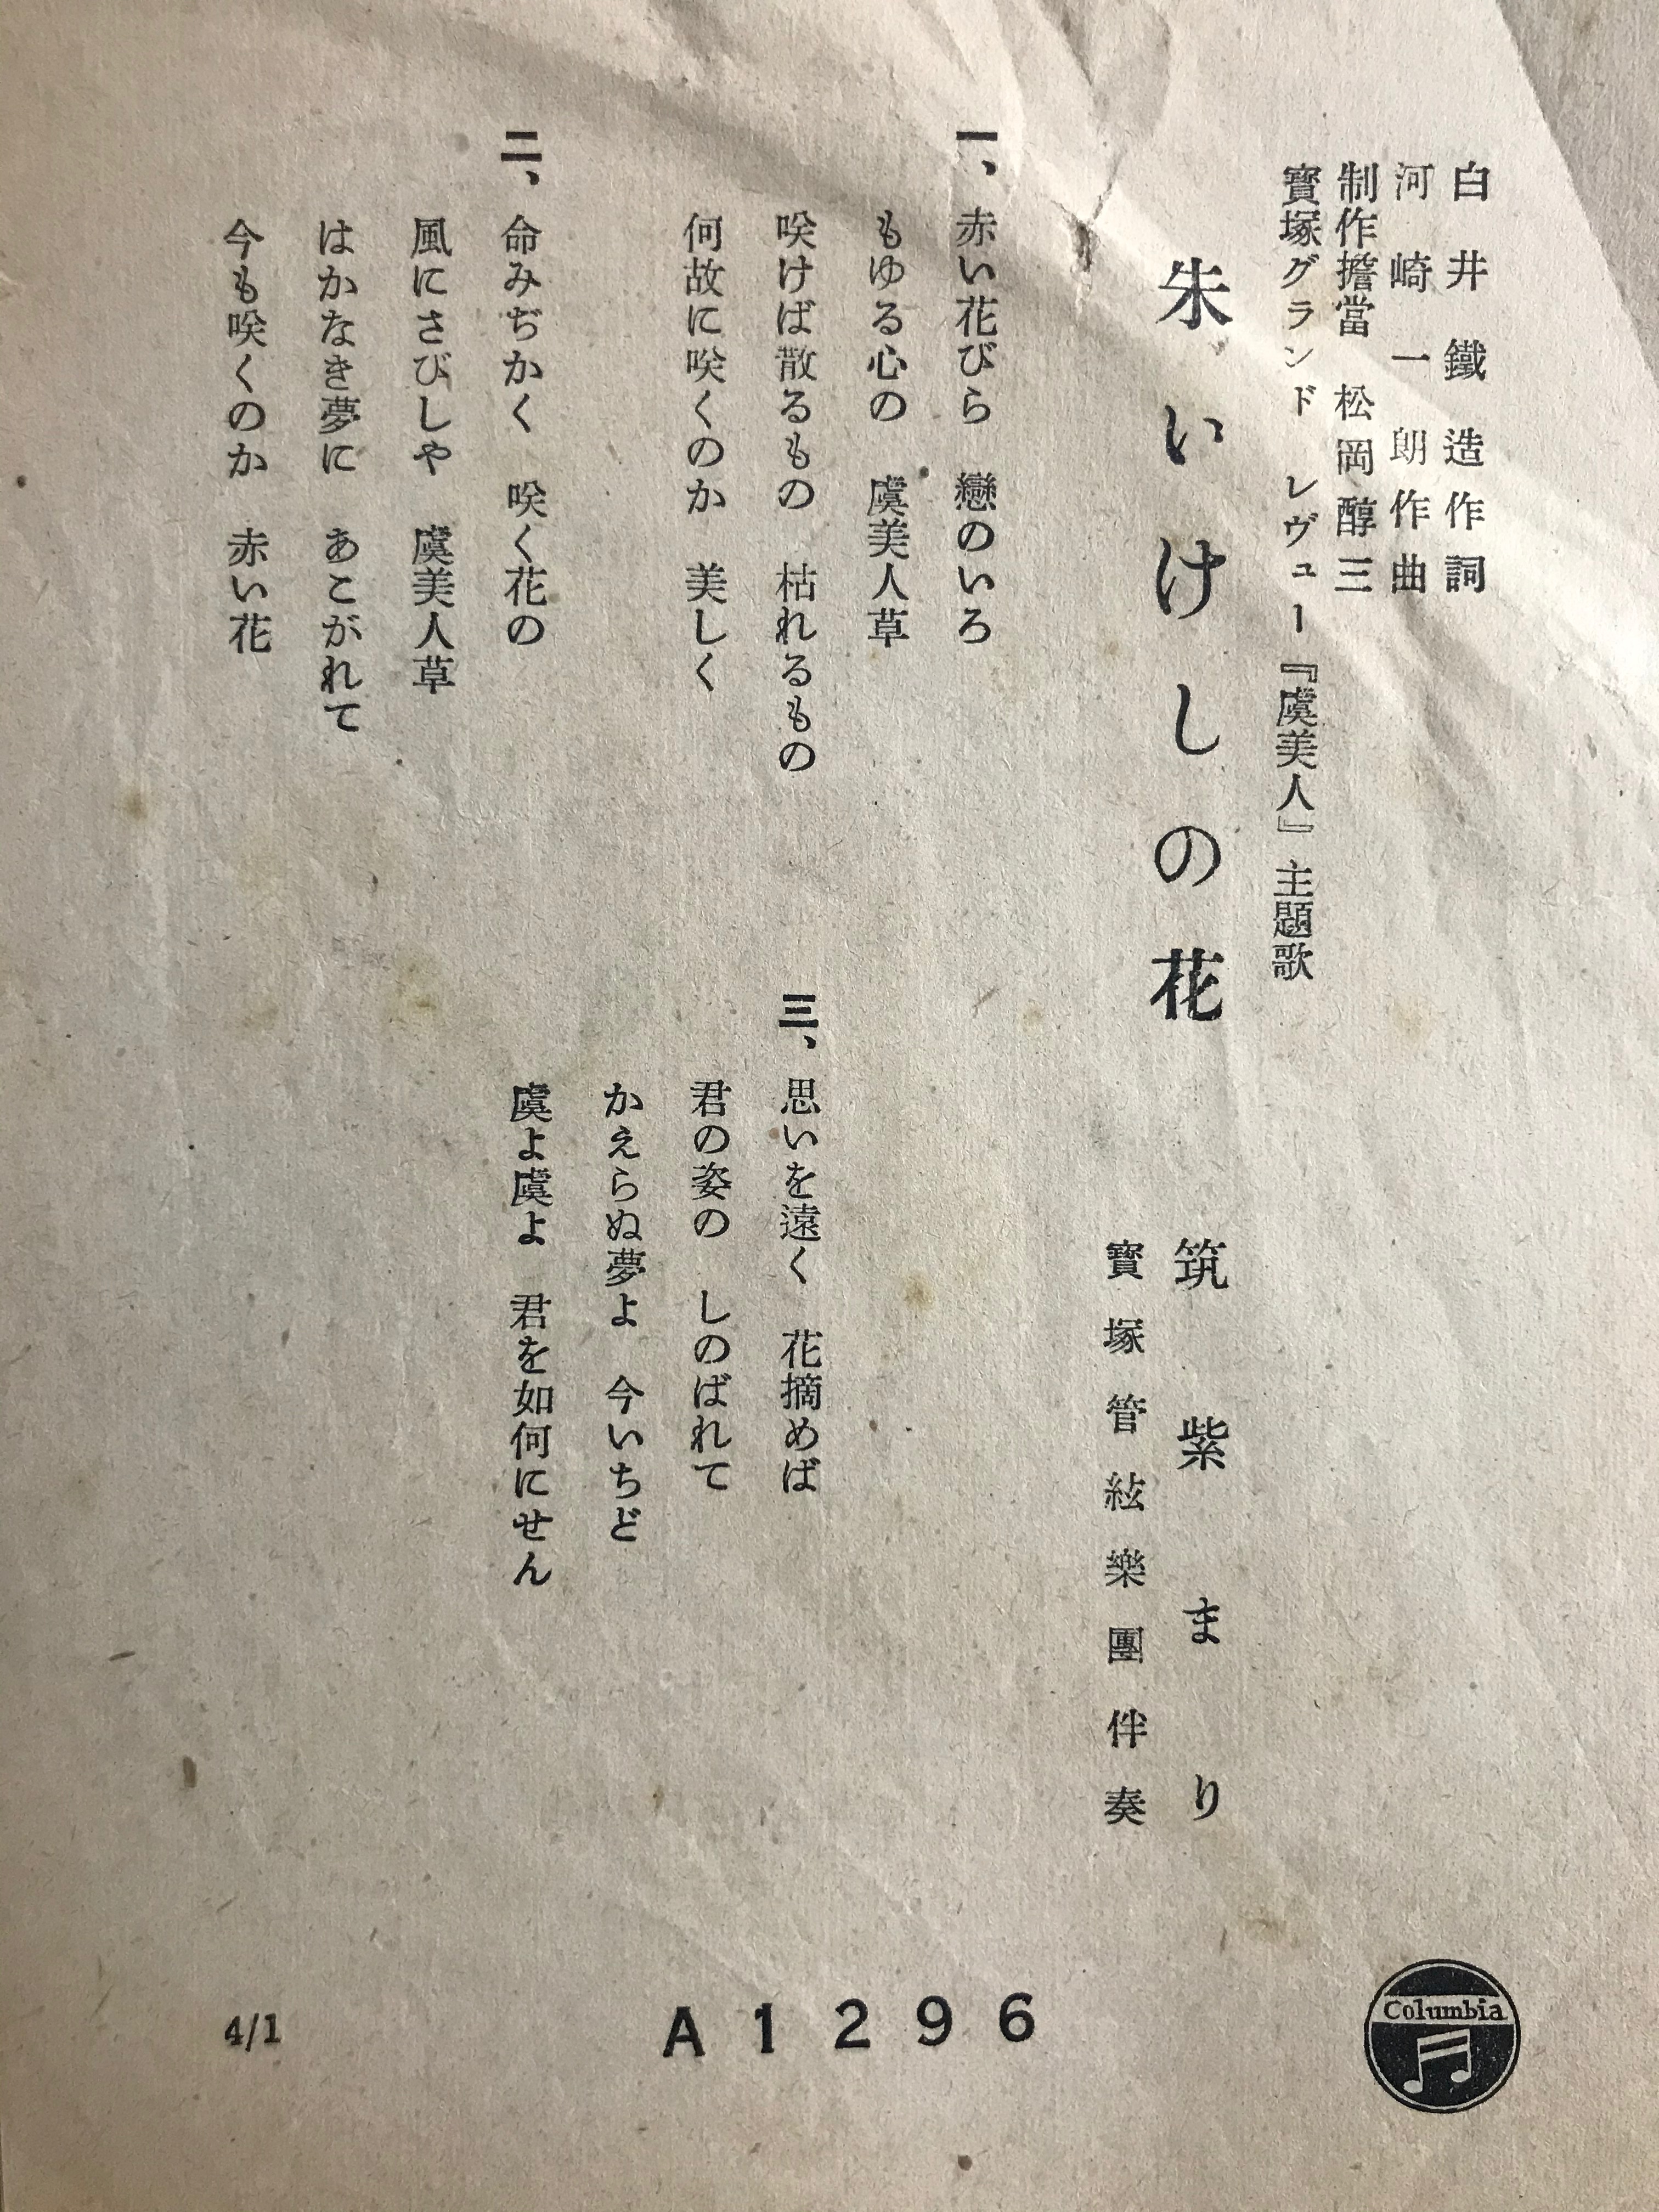 白井鐵造作詞
河崎一朗作曲
制作擔當　松岡醇三
寳塚グランド　レヴュー『虞美人』主題歌
朱いけしの花
筑紫まり
寳塚管絃樂團伴奏
一、赤い花びら　戀のいろ
もゆる心の　虞美人草
咲けば散るもの　枯れるもの
何故に咲くのか　美しく
二、命みぢかく　咲く花の
風にさびしや　虞美人草
はかなき夢に　あこがれて
今も咲くのか　赤い花
三、思いを遠く　花摘めば
君の姿の　しのばれて
かえらぬ夢よ　今いちど
虞よ虞よ　君を如何にせん
Columbia
A1296
4/1